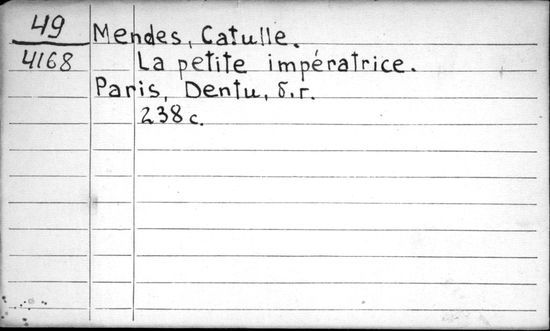 49
4168
Mendes, Catulle.
La petite impératrice.
Paris, Dentu, б.г.
238 с.